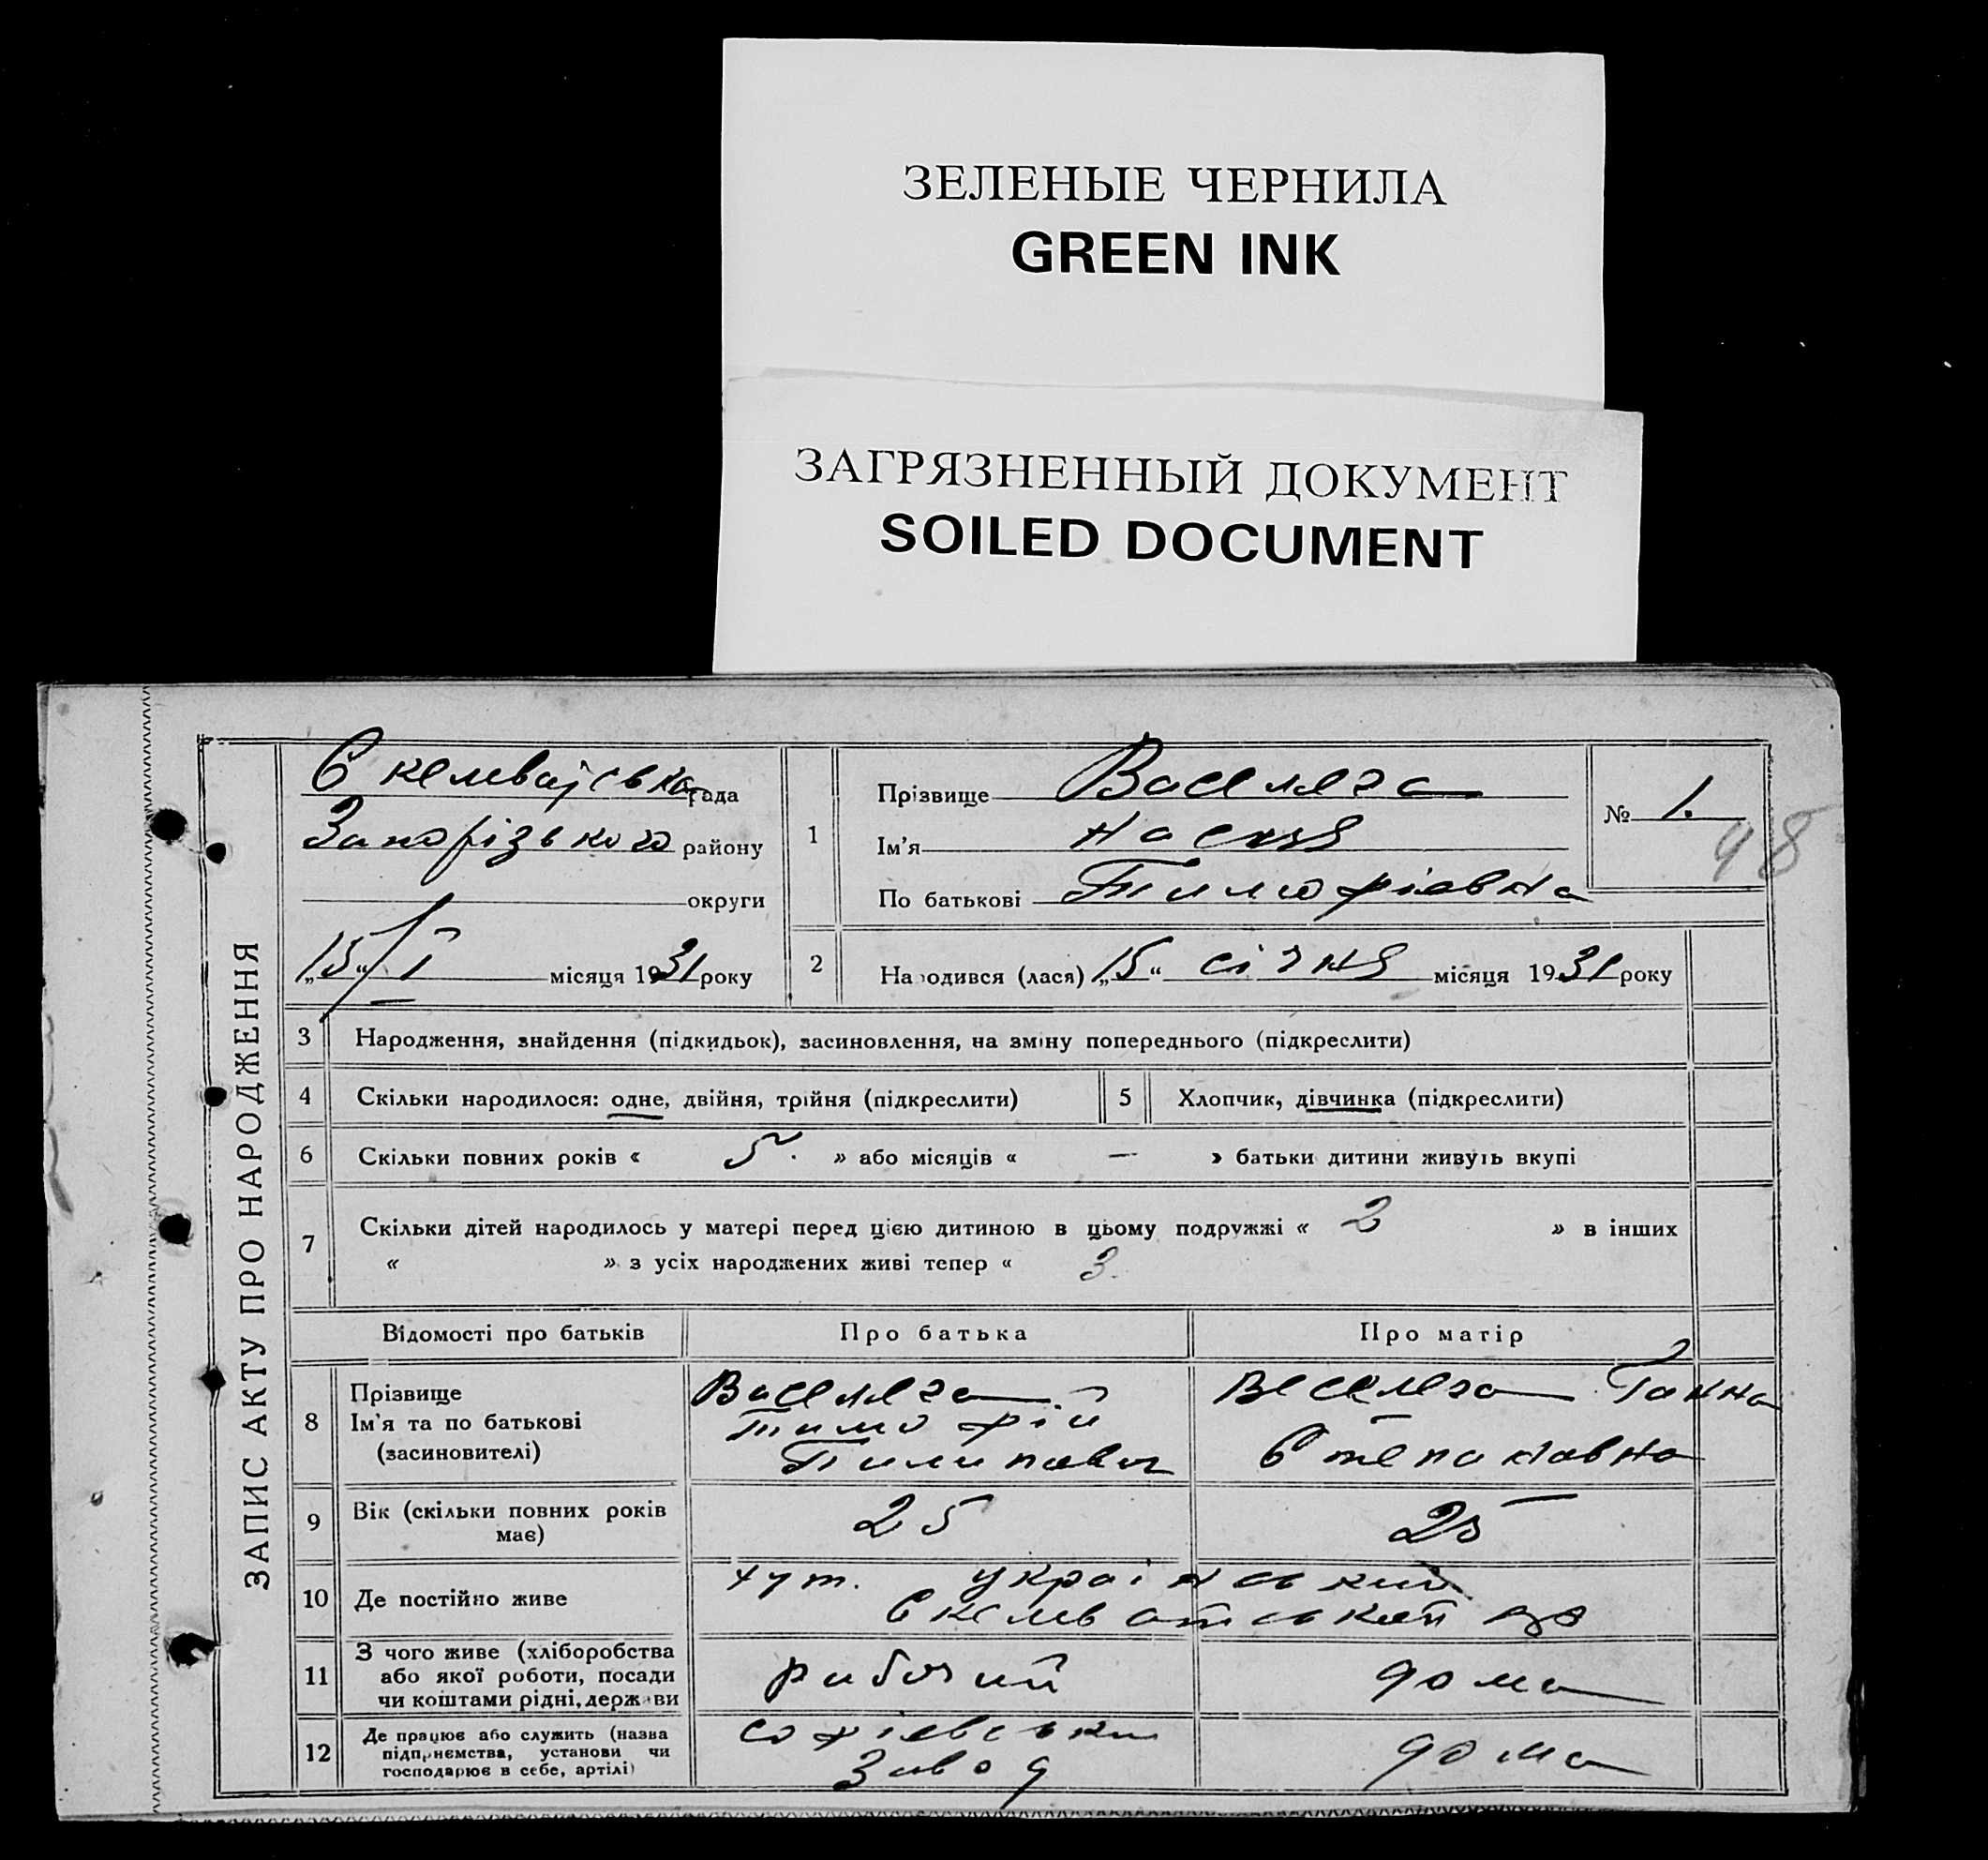 ЗЕЛЕНЫЕ ЧЕРНИЛА
GREEN INK
ЗАГРЯЗНЕННЫЙ ДОКУМЕНТ
SOILED DOCUMENT
ЗАПИС АКТУ ПРО НАРОДЖЕННЯ
рада
Запорізького району
округи
„15“ I місяця 1931 року
1 Прізвище
Ім'я
По батькові Тимофіевна
№ 1.
48
2 Народився (лася) „15“ січня місяця 1931 року
3 Народження, знайдення (підкидьок), засиновлення, на зміну попереднього (підкреслити)
4 Скільки народилося: одне, двійня, трійня (підкреслити) 5 Хлопчик, дівчинка (підкреслити)
6 Скільки повних років « 5. » або місяців « — » батьки дитини живуть вкупі
7 Скільки дітей народилось у матері перед цією дитиною в цьому подружжі « 2 » в інших
« » з усіх народжених живі тепер « 3.
Відомості про батьків Про батька Про матір
8 Прізвище
Ім'я та по батькові
(засиновителі)
Тимофій
Ганна
Степановна
9 Вік (скільки повних років має) 25 25
10 Де постійно живе хут. Український
11 З чого живе (хліборобства
або якої роботи, посади
чи коштами рідні, держави
рабочий дома
12 Де працює або служить (назва
підприємства, установи чи
господарює в себе, артілі)
завод дома